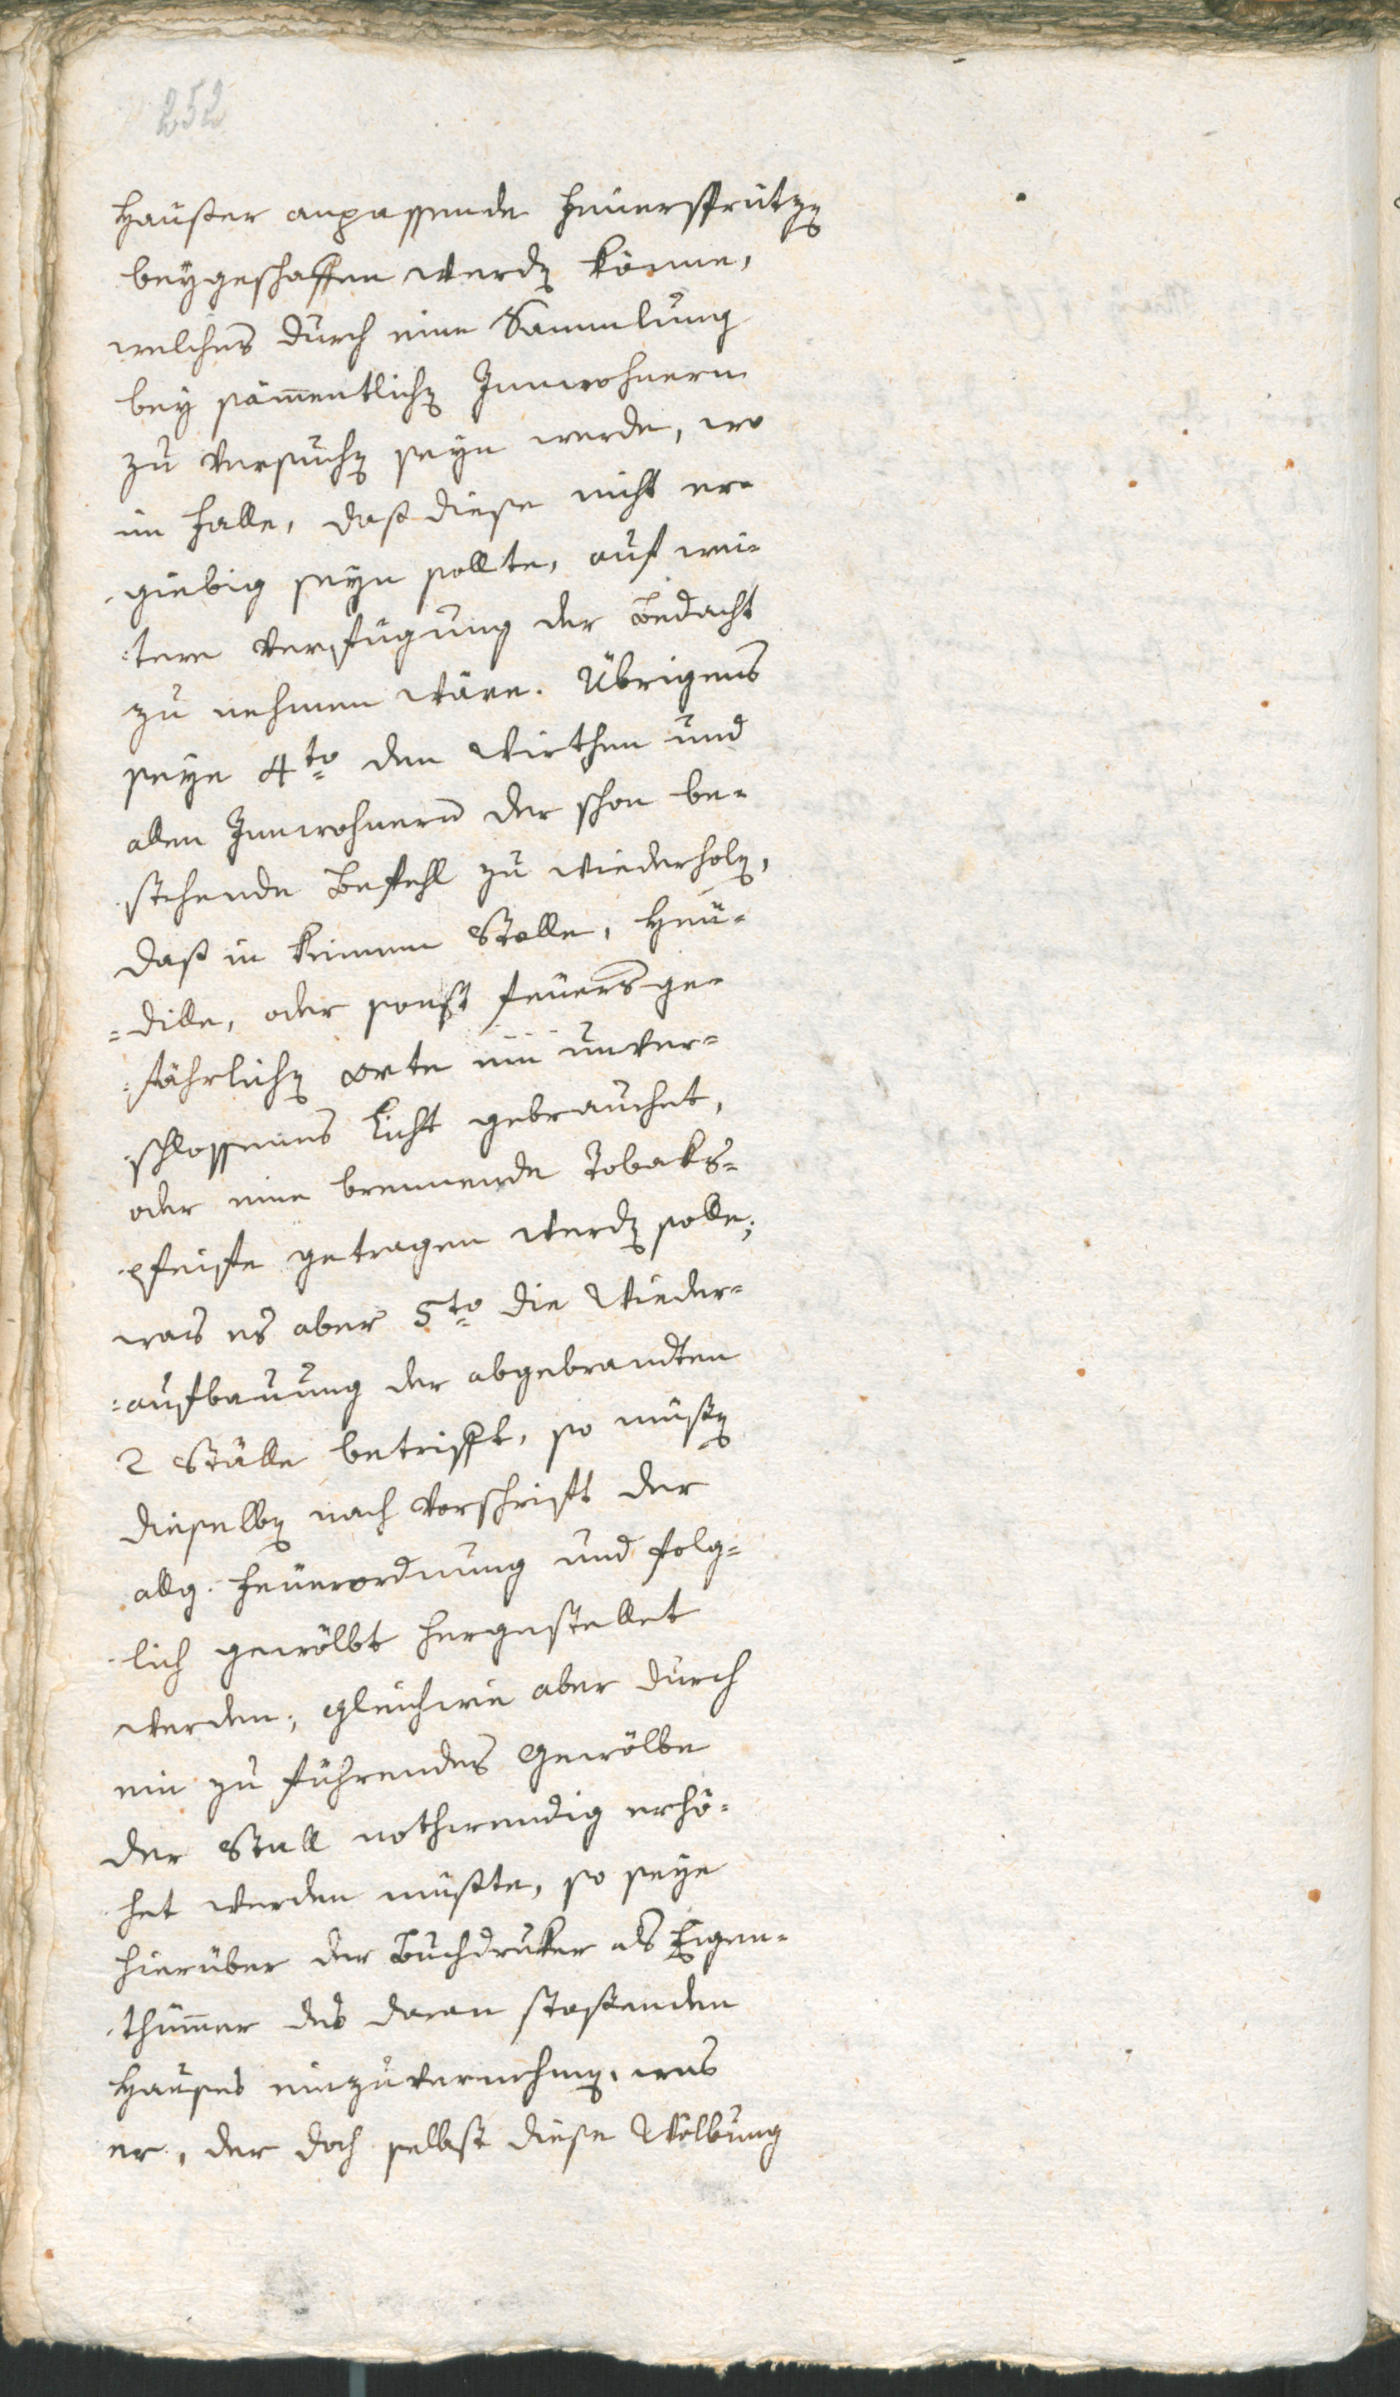 252
Häußer anpassende Feuerspritzen
beygeschaffen werden könne,
welches durch eine Sammlung
bey sämmentlichen Innwohnern
zu versuchen seyn werde, wo
im Falle, daß diese nicht er-
giebig seyn sollte, auf wei-
:tere Verfügung der Bedacht
zu nehmen wäre. Übrigens
seye 4to den Wirthen und
allen Innwohnern der schon be-
stehende Befehl zu wiederholen,
daß in keinem Stalle, Heu-
=dille, oder sonst feuersge-
:fährlichen Orte ein unver-
schlossenes Licht gebrauchet,
oder eine brennende Tobaks-
pfeiffe getragen werden solle;
was es aber 5to die Wieder-
=aufbauung der abgebrandten
2 Ställe betrifft, so müßen
dieselben nach Vorschrift der
allg. Feuerordnung und folg-
lich gewölbt hergestellet
werden; gleichwie aber durch
ein zu führendes Gewölbe
der Stall nothwendig erhö-
het werden müßte, so seye
hierüber der Buchdruker als Eigen-
thümmer des daran stoßenden
Hauses einzuvernehmen, was
er, der doch selbst diese Wölbung